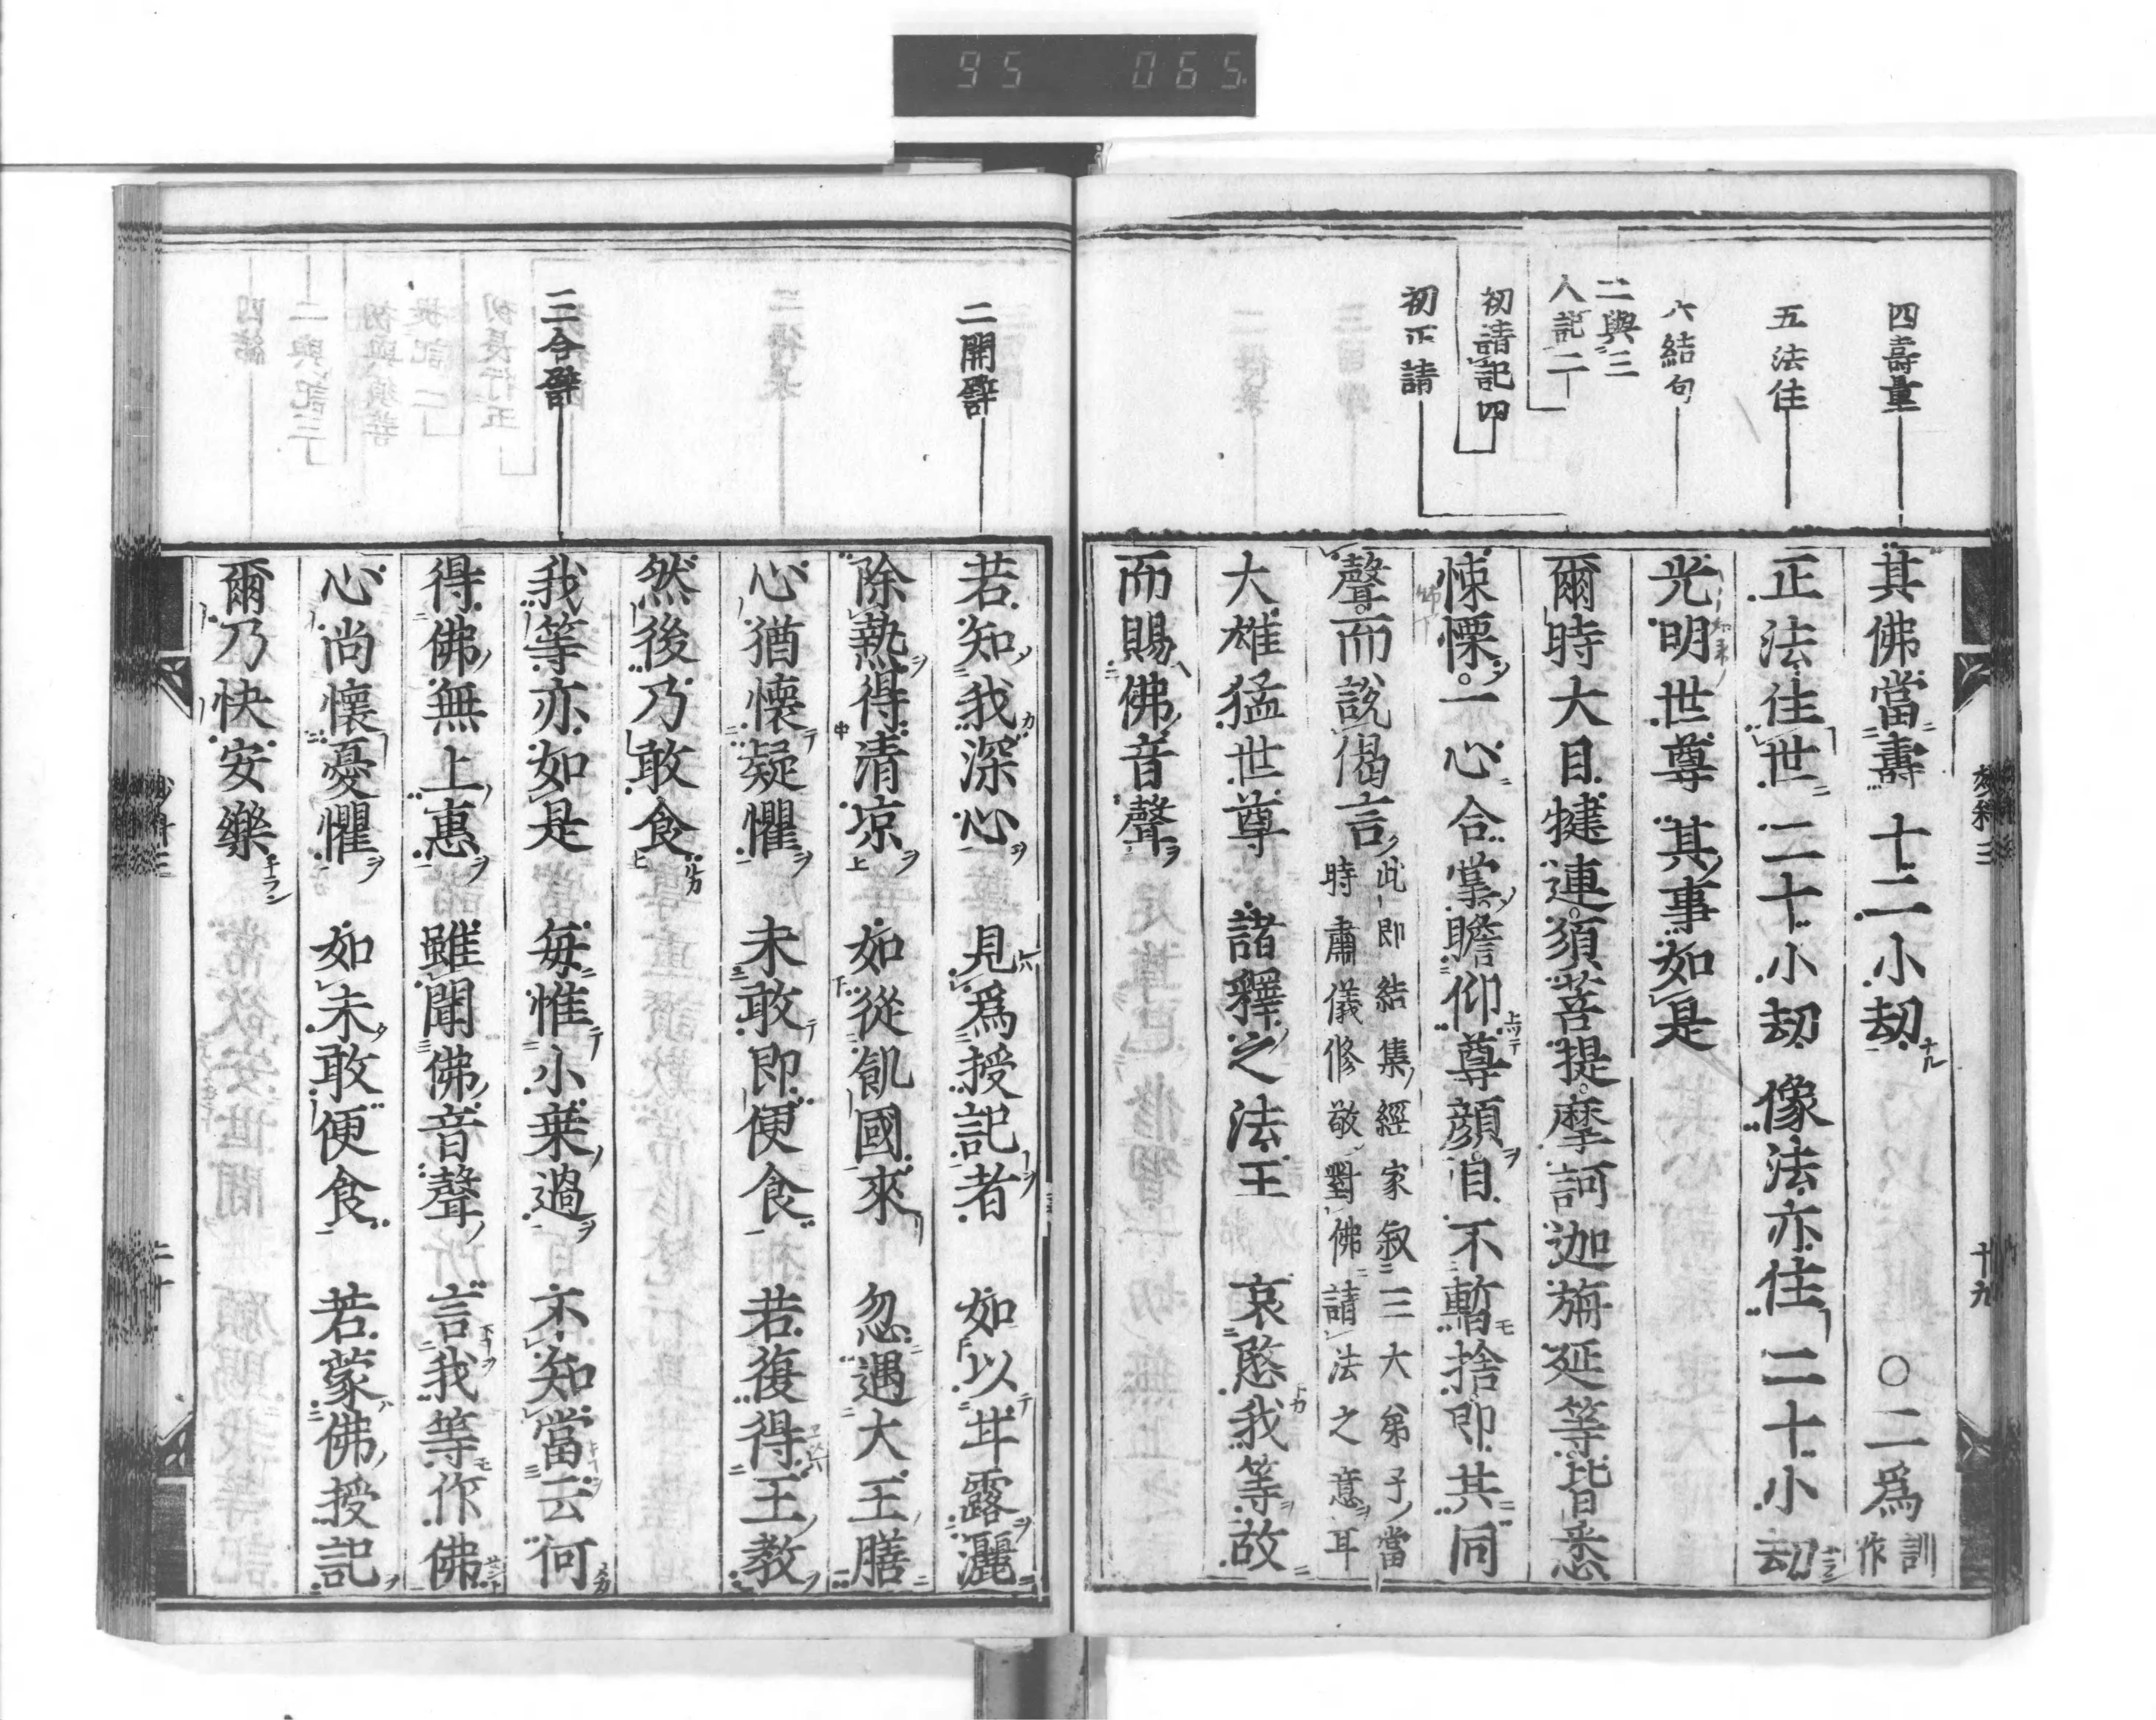 95 065
四壽量
五法住
六結句
二與三
人記二
初請記四
初正請
其佛當壽 十二小劫 〇二爲訓作
正法住世 二十小劫 像法亦住 二十小劫
光明世尊 其事如是
爾時大目犍連須菩提摩訶迦旃延等皆悉
悚慄一心合掌瞻仰尊顔目不暫捨即共同
聲而說偈言此即結集經家叙三大弟子當
時肅儀修敬對佛請法之意耳
大雄猛世尊 諸釋之法王 哀愍我等故
而賜佛音聲
十九
二開譬
三合譬
若知我深心 見爲授記者 如以甘露灑
除熱得清凉 如從飢國來 忽遇大王膳
心猶懷疑懼 未敢即便食 若復得王教
然後乃敢食
我等亦如是 每惟小乗過 不知當云何
得佛無上惠 雖聞佛音聲 言我等作佛
心尚懷憂懼 如未敢便食 若蒙佛授記
爾乃快安樂
二十